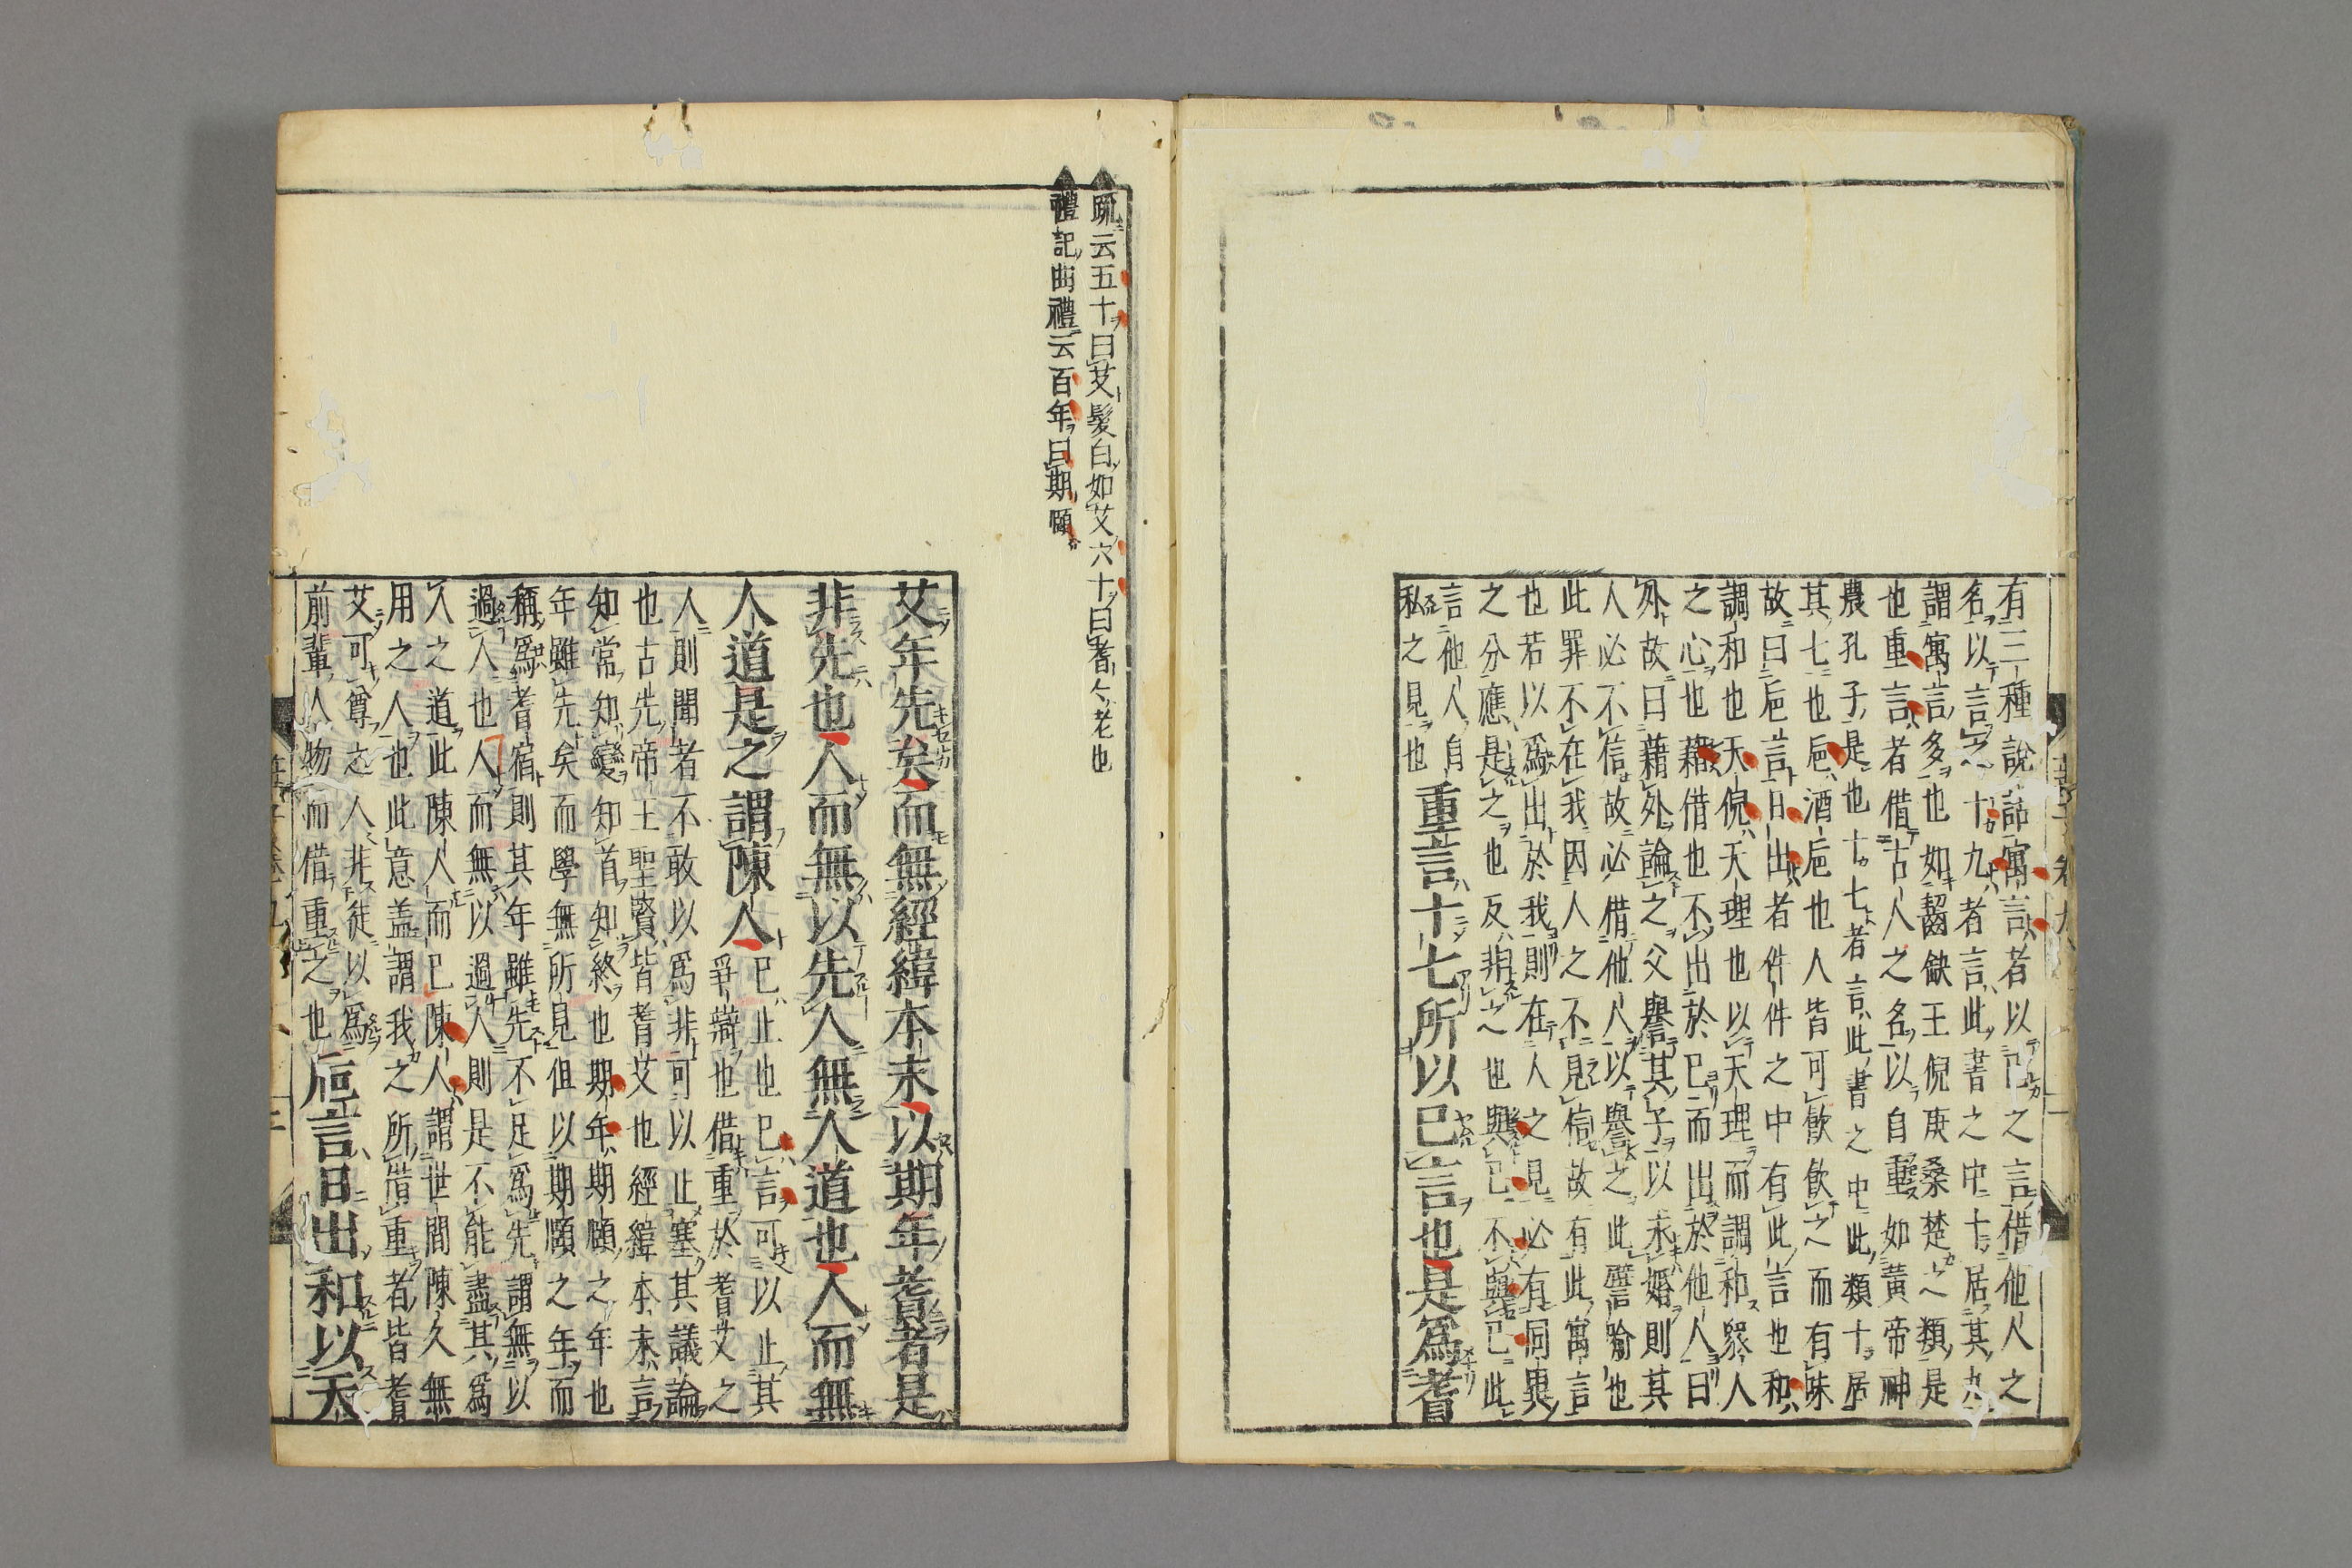 有三種說話寓言者以己之言借他人之
名以言之十九者言此書之中十居其九
謂寓言多也如齧缺王倪庚桑楚之類是
也重言者借古人之名以自重如黃帝神
農孔子是也十七者言此書之中此類十居
其七也巵酒巵也人皆可飲飲之而有味
故曰巵言日出者件件之中有此言也和
調和也天倪天理也以天理而調和衆人
之心也藉借也不出於己而出於他人曰
外故曰藉外論之父譽其子以求婚則其
人必不信故必借他人以譽之此譬喻也
此罪不在我因人之不見信故有此寓言
也若以爲出於我則在人之見必有同異
之分應是之也反非之也與己不與己此
言他人自
私之見也
重言十七所以已言也是爲耆
疏云五十曰艾髮白如艾六十曰耆今老也
禮記曲禮云百年曰期頤
艾年先矣而無經緯本末以期年耆者是
非先也人而無以先人無人道也人而無
人道是之謂陳人
已止也已言可以止其
爭辯也借重於耆艾之
人則聞者不敢以爲非可以止塞其議論
也古先帝王聖賢皆耆艾也經緯本末言
知常知變知首知終也期年期頤之年也
年雖先矣而學無所見但以期頤之年而
稱爲耆宿則其年雖先不足爲先謂無以
過人也人而無以過人則是不能盡其爲
人之道此陳人而已陳人謂世間陳久無
用之人也此意盖謂我之所借重者皆耆
艾可尊之人非徒以爲
前輩人物而借重之也
巵言日出和以天